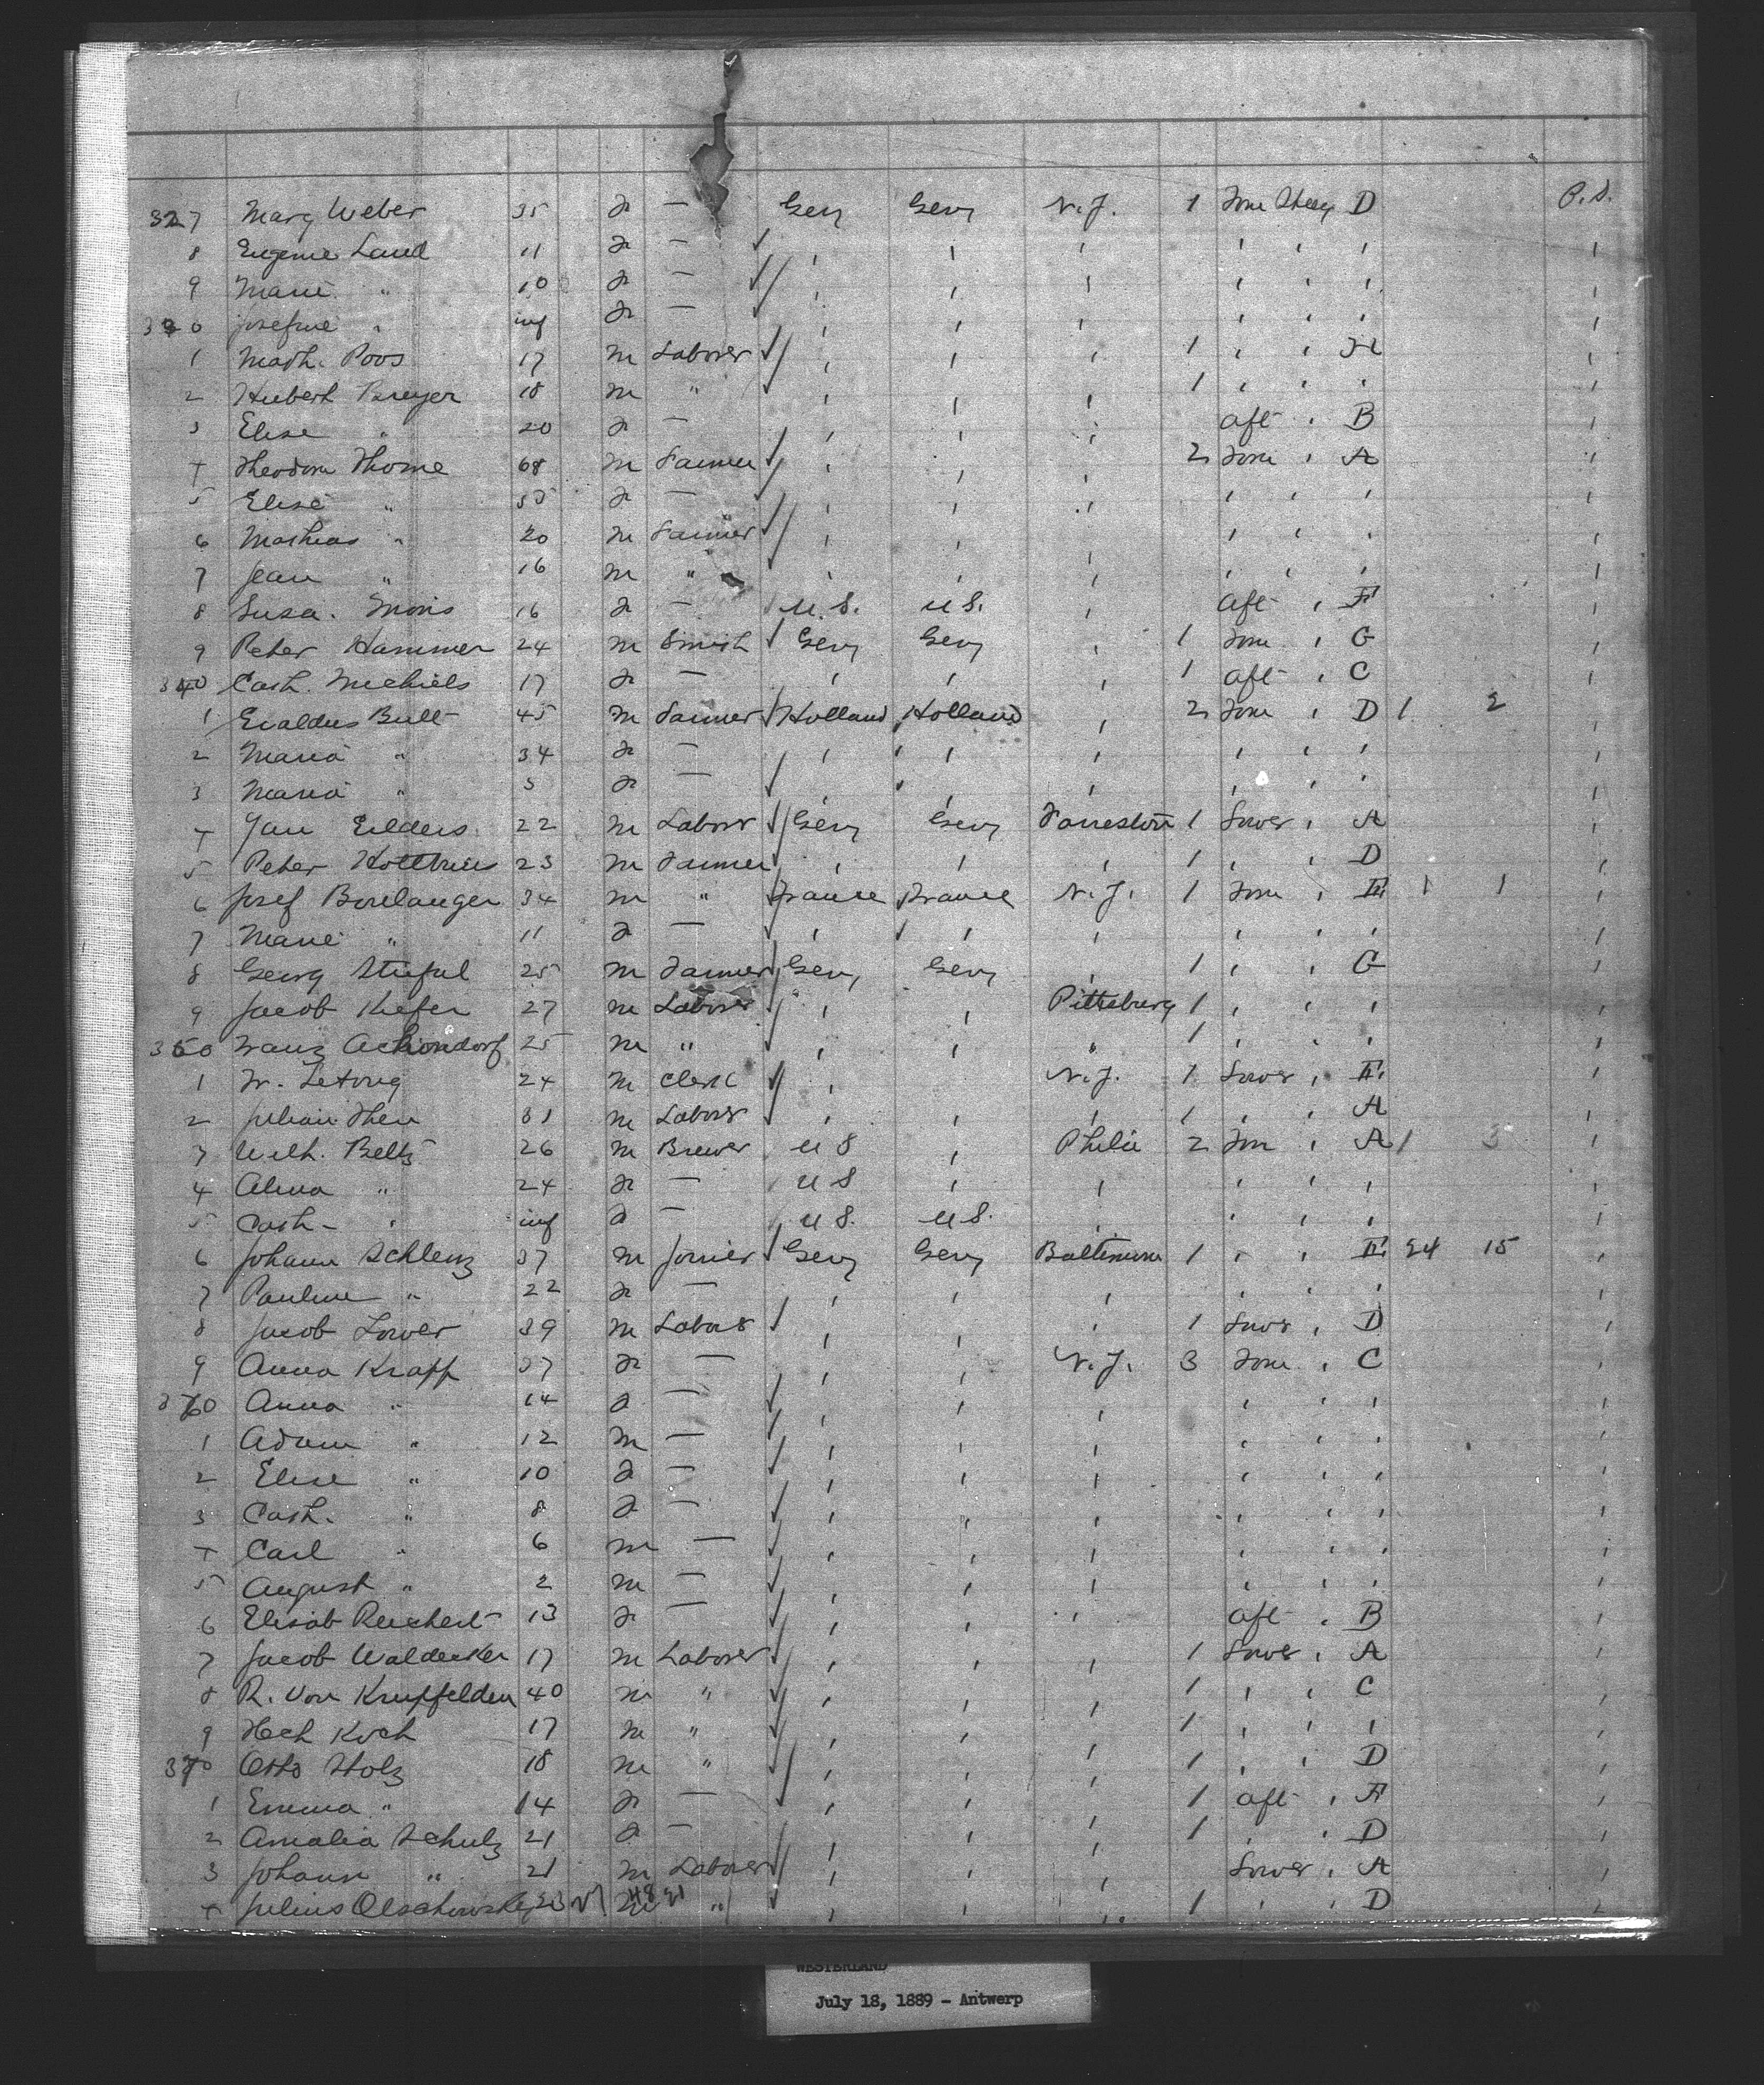 327 Marg Weber 35 F — Gery Gery N.J. 1 Fore Steerg D P.S.
8 Eugenie Laud 11 F — ' ' ' ' ' ' '
9 Marie " 10 F — ' ' ' ' ' ' '
330 Josefine " inf F — ' ' ' ' ' ' '
1 Math. Poos 17 M Laborer ' ' ' 1 ' ' H '
2 Hubert Breyer 18 M " ' ' ' 1 ' ' ' '
3 Elise " 20 F — ' ' ' aft ' B
4 Theodor Thome 68 M Farmer ' ' ' 2 Fore ' A '
5 Elise " F — ' ' ' ' ' ' '
6 Mathias " 20 M Farmer ' ' ' ' ' ' '
7 Jean " 16 M " ' ' ' ' ' ' '
8 Susa. 16 F — U.S. U.S. ' aft ' F '
9 Peter Hammer 24 M Smith Gery Gery ' 1 Fore ' G '
340 Cath. Mechiels 17 F — ' ' ' 1 aft ' C '
1 Evaldus Bult 45 M Farmer Holland Holland ' 2 Fore ' D 1 2 '
2 Maria " 34 F — ' ' ' ' ' ' '
3 Maria " 5 F — ' ' ' ' ' ' '
4 Jan Eilders 22 M Labor Gery Gery Forreston 1 Lower ' A '
5 Peter 23 M Farmer ' ' ' 1 ' ' D '
6 Josef Boulanger 34 M " France France N.J. 1 Fore ' E 1 1 '
7 Marie " 11 F — ' ' ' ' ' ' '
8 Georg 25 M Farmer Gery Gery ' 1 ' ' G '
9 Jacob Kiefer 27 M Laborer ' ' Pittsburg 1 ' ' ' '
350 Franz 25 M " ' ' " 1 ' ' ' '
1 24 M Clerk ' N.J. 1 Lower ' E '
2 Julian Then 31 M Laborer ' ' ' 1 ' ' A '
3 Wilh. Beltz 26 M Brewer U S ' Philia 2 Fore ' A 1 3 '
4 Alma " 24 F — U S ' ' ' ' ' '
5 Cath- " inf F — U S. U S. ' ' ' ' '
6 Johann Schlenz 37 M Joiner Gery Gery Baltimore 1 ' ' E 24 15 '
7 Pauline " 22 F — ' ' ' ' ' ' '
8 Jacob Lower 39 M Labour ' ' ' 1 Lower ' D '
9 Anna Krapp 37 F — ' ' N.J. 3 Fore ' C '
360 Anna " 14 F — ' ' ' ' ' ' '
1 Adam " 12 M — ' ' ' ' ' ' '
2 Elise " 10 F — ' ' ' ' ' ' '
3 Cath. " 8 F — ' ' ' ' ' ' '
4 Carl " 6 M — ' ' ' ' ' ' '
5 August " 2 M — ' ' ' ' ' ' '
6 Elisab Reichert 13 F — ' ' ' aft ' B '
7 Jacob Waldecker 17 M Laborer ' ' ' 1 Lower ' A '
8 R. von Krupfelden 40 M " ' ' ' 1 ' ' C '
9 Hch Koch 17 M " ' ' ' 1 ' ' ' '
370 Otto Holz 18 M " ' ' ' 1 ' ' D '
1 Emma " 14 F — ' ' ' 1 aft ' F '
2 Amalia Schulz 21 F — ' ' ' 1 ' ' D '
3 Johann " 21 M Laborer ' ' ' Lower ' A '
4 Julius Olschowsky 23 M " ' ' ' 1 ' ' D
WESTERLAND
July 18, 1889 - Antwerp